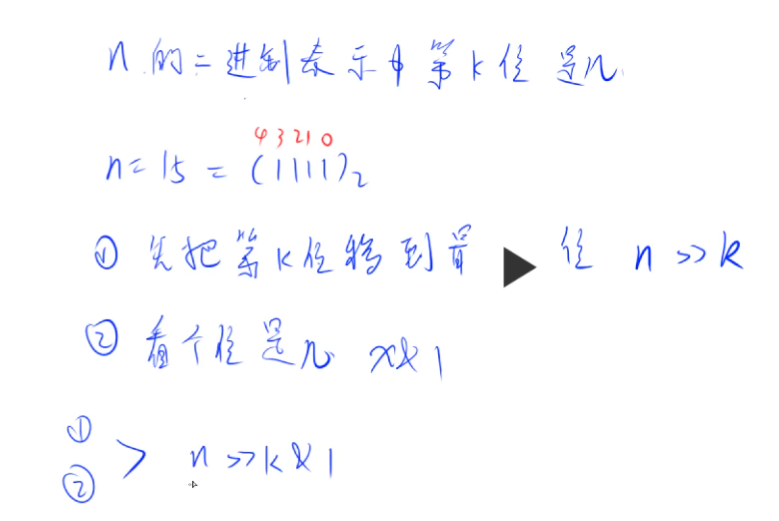 n 的二进制表示中第k位是几
4 3 2 1 0
n = 15 = (1111)2
① 先把第k位移到最 位 n >> k
② 看个位是几 x & 1
①
② > n >> k & 1